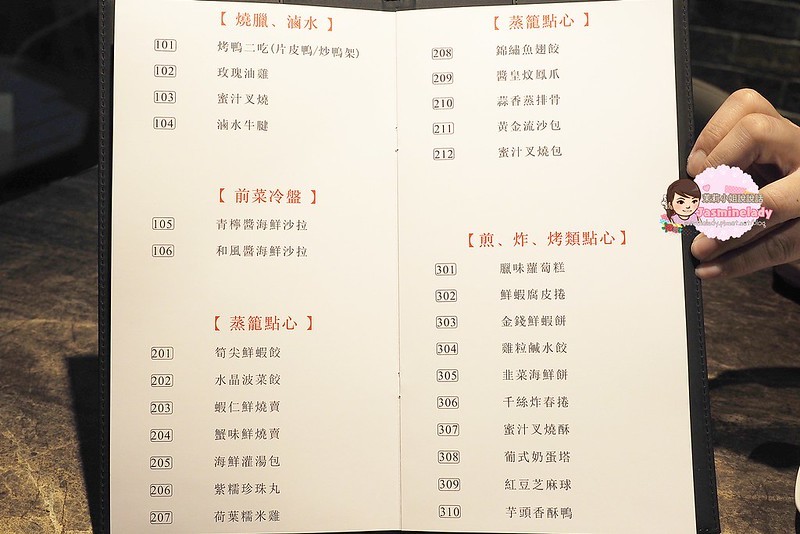 【 燒臘、滷水 】
101 烤鴨二吃(片皮鴨/炒鴨架)
102 玫瑰油雞
103 蜜汁叉燒
104 滷水牛腱
【 前菜冷盤 】
105 青檸醬海鮮沙拉
106 和風醬海鮮沙拉
【 蒸籠點心 】
201 筍尖鮮蝦餃
202 水晶波菜餃
203 蝦仁鮮燒賣
204 蟹味鮮燒賣
205 海鮮灌湯包
206 紫糯珍珠丸
207 荷葉糯米雞
【 蒸籠點心 】
208 錦繡魚翅餃
209 醬皇炆鳳爪
210 蒜香蒸排骨
211 黃金流沙包
212 蜜汁叉燒包
【 煎、炸、烤類點心 】
301 臘味蘿蔔糕
302 鮮蝦腐皮捲
303 金錢鮮蝦餅
304 雞粒鹹水餃
305 韭菜海鮮餅
306 千絲炸春捲
307 蜜汁叉燒酥
308 葡式奶蛋塔
309 紅豆芝麻球
310 芋頭香酥鴨
茉莉小姐說說話
Jasminelady